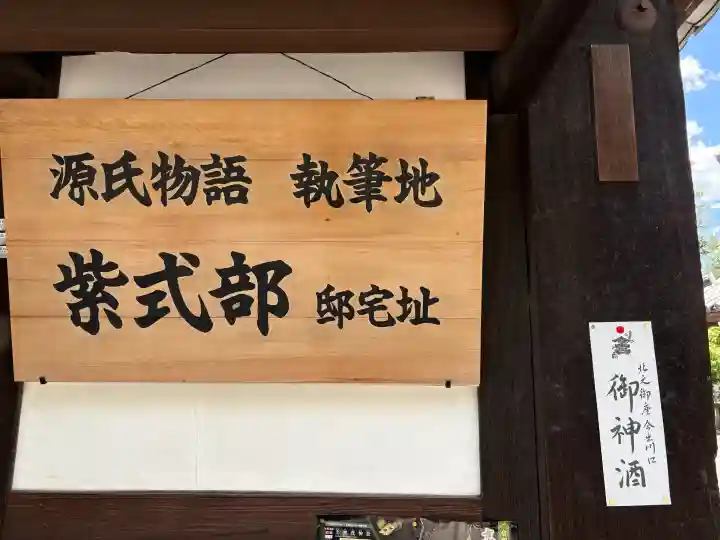 源氏物語 執筆地
紫式部 邸宅址
北之御座今出川口
御神酒